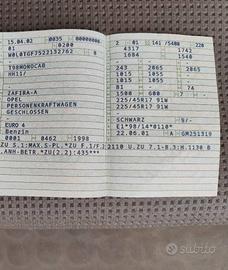 15.04.02 0035 00000000
01 0200
W0L0TGF7522132762
T98MONOCAB
HH11/
ZAFIRA-A
OPEL
PERSONENKRAFTWAGEN
GESCHLOSSEN
EURO 4
Benzin
0001 0462 1998
2 01 141 /5400 220
4317 1742
1684 1540
243 2065 2065
1015 1055
1015 1055
81 74
1500 680
225/45R17 91W
225/45R17 91W
SCHWARZ 9/-
E1*98/14*0110*
22.06.01 A GM251319
ZU 5.1:MAX.S-PL.*ZU F.1/F.2 2110 U.ZU 7.1-8.3:H.1130 B
.ANH-BETR.*ZU(2.2):435***
subito